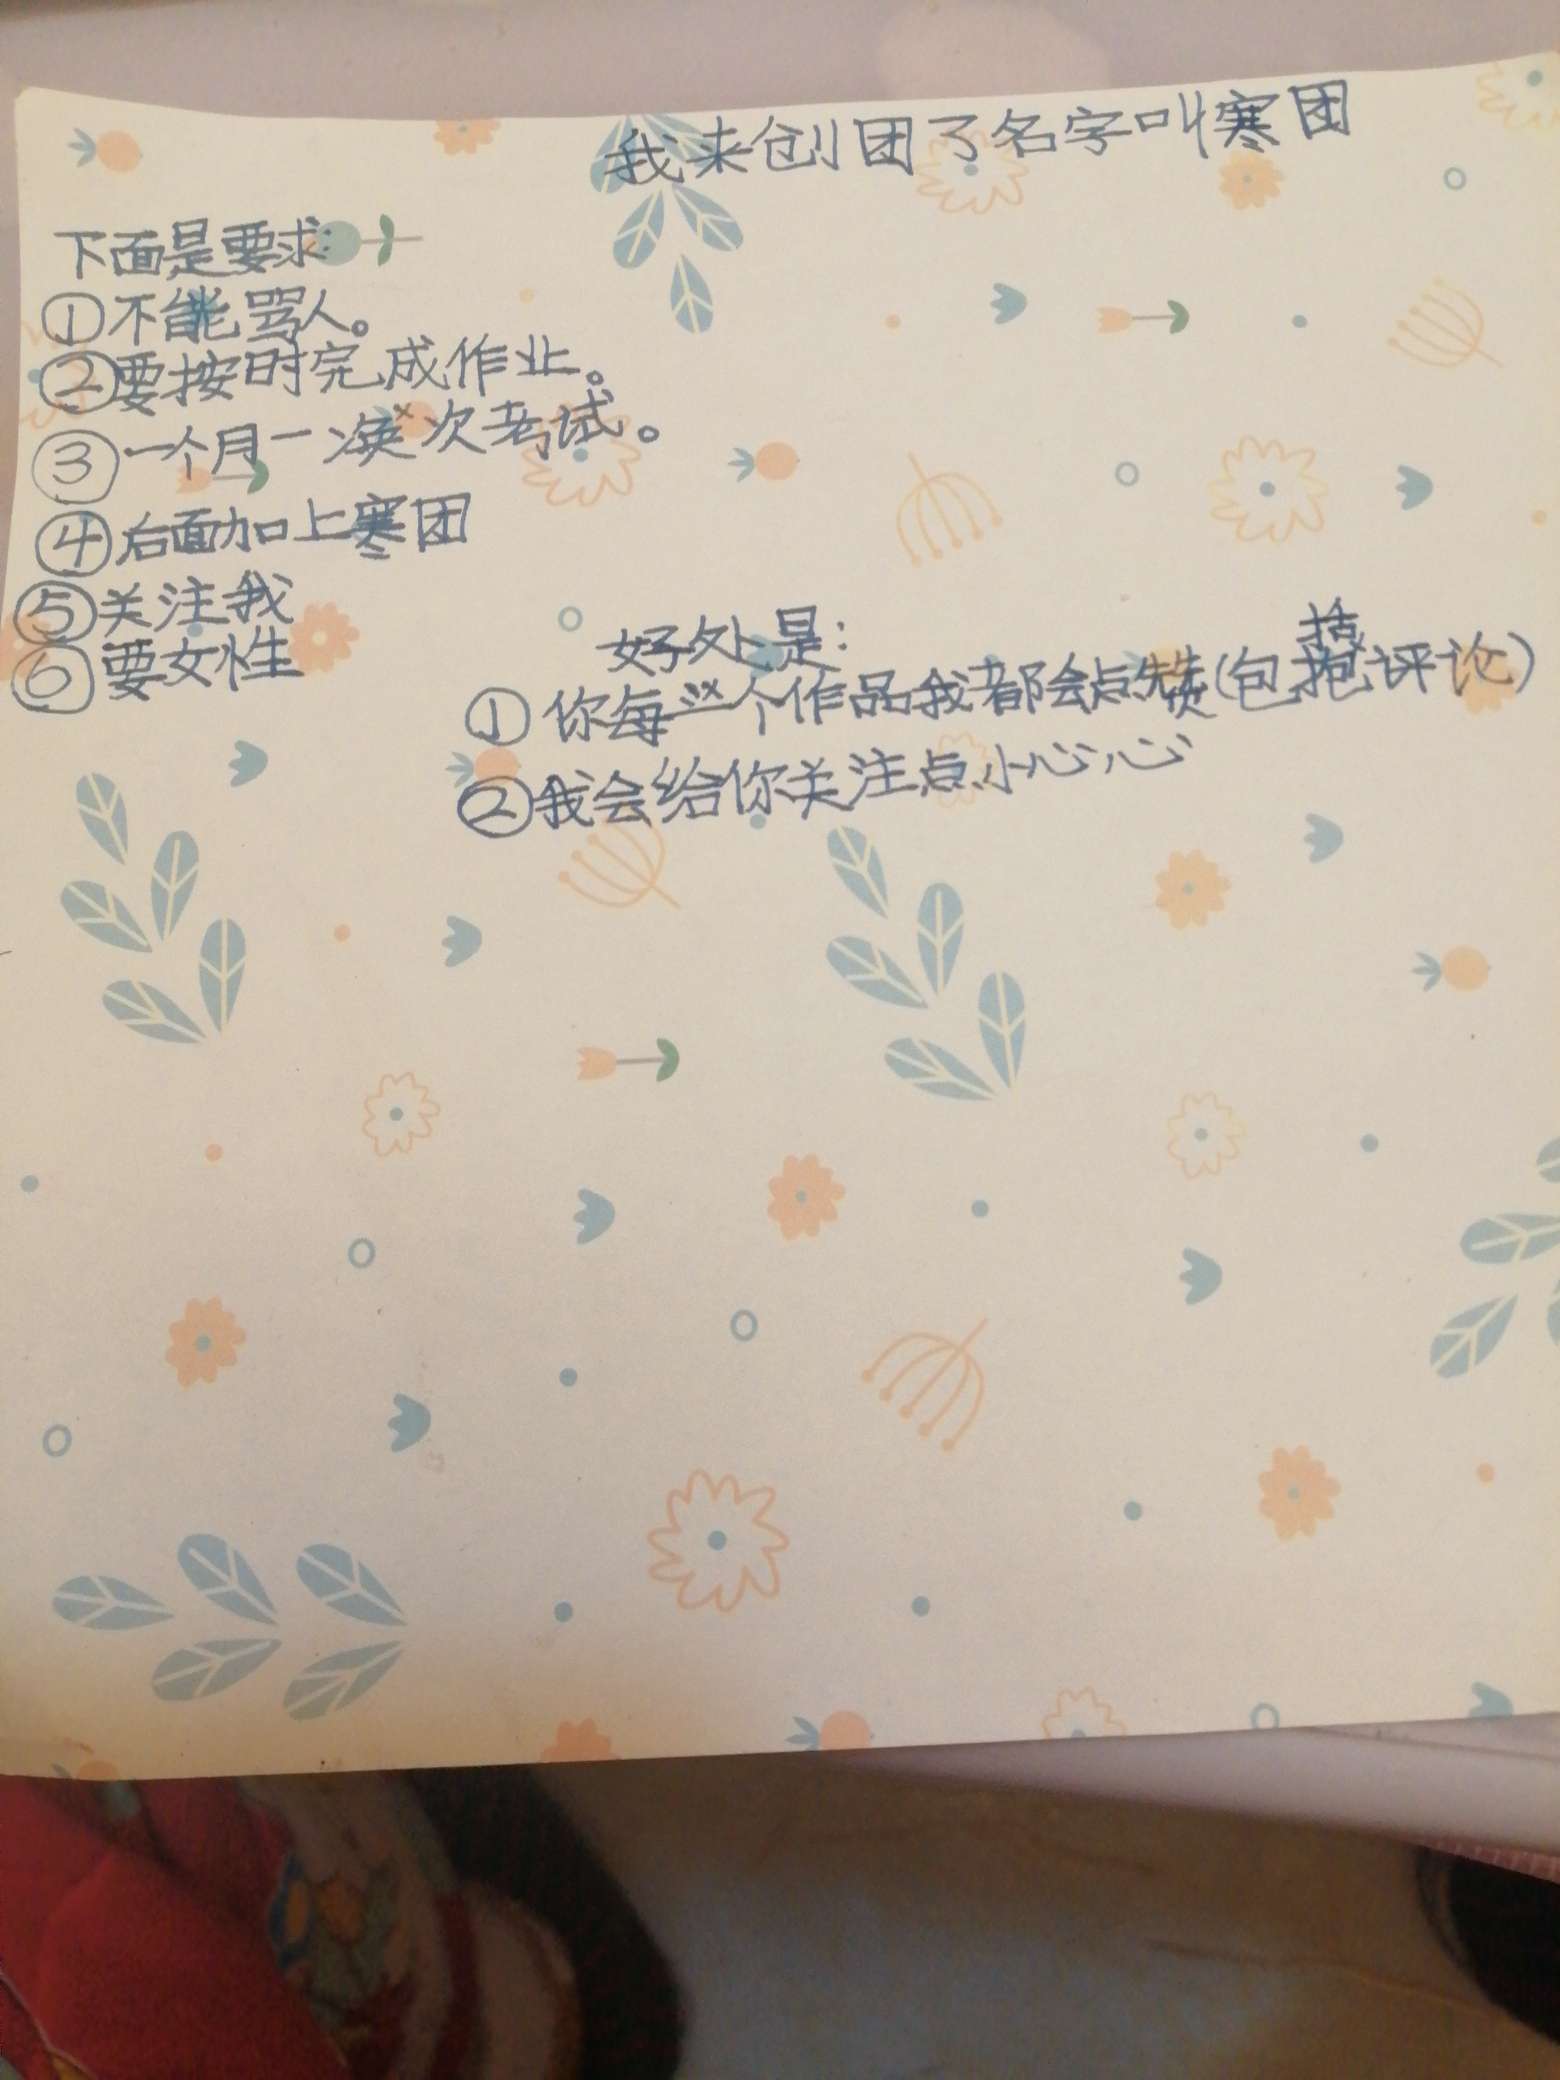 我来创团了名字叫寒团
下面是要求:
①不能骂人。
②要按时完成作业。
③一个月一次考试。
④后面加上寒团
⑤关注我
⑥要女性
好处是:
①你每一个作品我都会点赞(包括评论)
②我会给你关注点小心心